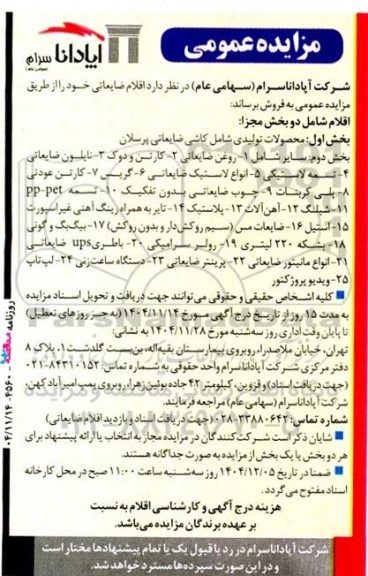 آپادانا سرام
(سهامی عام)
مزایده عمومی
شرکت آپاداناسرام (سهامی عام) در نظر دارد اقلام ضایعاتی خود را از طریق
مزایده عمومی به فروش برساند:
اقلام شامل دو بخش مجزا:
بخش اول: محصولات تولیدی شامل کاشی ضایعاتی پرسلان
بخش دوم: سایر شامل ۱- روغن ضایعاتی ۲- کارتن و دوک ۳- نایلون ضایعاتی
۴- تسمه لاستیکی ۵- انواع لاستیک ضایعاتی ۶- گریس ۷- کارتن عودتی
۸- پلی کربنات ۹- چوب ضایعاتی بدون تفکیک ۱۰- تسمه pp-pet
۱۱- شیلنگ ۱۲- آهن آلات ۱۳- پلاستیک ۱۴- تایر به همراه رینگ آهنی غیراسپورت
۱۵- استیل ۱۶- ضایعات مس (سیم روکش‌دار و بدون روکش) ۱۷- بیگ‌بگ و گونی
۱۸- بشکه ۲۲۰ لیتری ۱۹- رولر سرامیکی ۲۰- باطری ups ضایعاتی
۲۱- انواع مانیتور ضایعاتی ۲۲- پرینتر ضایعاتی ۲۳- دستگاه ساعت‌زنی ۲۴- لپ‌تاپ
۲۵- ویدیو پروژکتور
کلیه اشخاص حقیقی و حقوقی می‌توانند جهت دریافت و تحویل اسناد مزایده
به مدت ۱۵ روز از تاریخ درج آگهی مورخ ۱۴۰۴/۱۱/۱۴ (به جز روزهای تعطیل)
تا پایان وقت اداری روز سه‌شنبه مورخ ۱۴۰۴/۱۱/۲۸ به نشانی:
تهران، خیابان ملاصدرا، روبروی بیمارستان بقیه‌اله، بن‌بست گلدشت ۱، پلاک ۸
دفتر مرکزی شرکت آپاداناسرام واحد حقوقی به شماره تماس: ۸۴۳۱۰۱۵۲-۰۲۱
(جهت دریافت اسناد) و قزوین، کیلومتر ۴۲ جاده بوئین زهرا، روبروی پمپ امیرآباد کهن،
شرکت آپاداناسرام (سهامی عام) مراجعه فرمایند.
شماره تماس: ۳۳۸۸۰۶۴۲-۰۲۸ (جهت دریافت اسناد و بازدید اقلام ضایعاتی)
شایان ذکر است شرکت‌کنندگان در مزایده مجاز به انتخاب یا ارائه پیشنهاد برای
هر دو بخش یا یک بخش از مزایده به صورت جداگانه هستند.
ضمنا در تاریخ ۱۴۰۴/۱۲/۰۵ روز سه‌شنبه ساعت ۱۱:۰۰ صبح در محل کارخانه
اسناد مفتوح می‌گردد.
هزینه درج آگهی و کارشناسی اقلام به نسبت
بر عهده برندگان مزایده می‌باشد.
شرکت آپاداناسرام در رد یا قبول یک یا تمام پیشنهادها مختار است
و در این صورت سپرده‌ها مسترد خواهد شد.
روزنامه
۰۴/۱۱/۱۴ - ۴۵۶۰